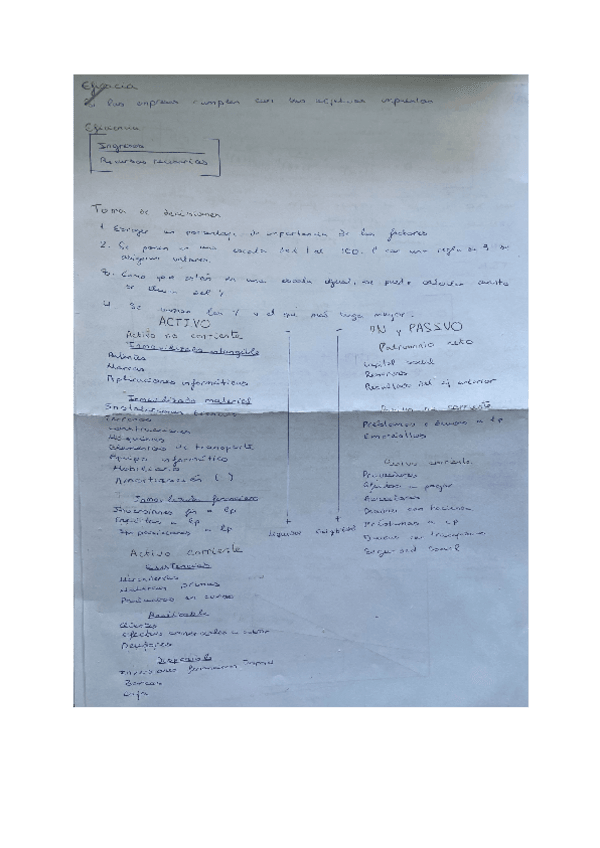 Eficacia
Las empresas cumplen con los objetivos
Eficiencia
Ingresos
Recursos necesarios
Toma de decisiones
1. Escoger un porcentaje de importancia de los factores
2. Se ponen en una escala del 1 al 100
3. Como ya están en una escala igual, se puede calcular
4. Se suman los % y el que más tenga mayor.
ACTIVO
Activo no corriente
Inmovilizado intangible
Marcas
Aplicaciones informáticas
Inmovilizado material
Instalaciones
Terrenos
Construcciones
Maquinaria
Elementos de transporte
Equipos informáticos
Mobiliario
Amortización ( )
Inmovilizado financiero
Inversiones fin a lp
a lp
Imposiciones a lp
Activo corriente
Existencias
Mercaderías
Materias primas
Productos en curso
Realizable
Clientes
Efectos comerciales a cobrar
Deudores
Disponible
Inversiones financieras
Bancos
Caja
-
+
liquidez
-
+
exigibilidad
PN y PASIVO
Patrimonio neto
Capital social
Reservas
Resultados del ej anterior
Pasivo no corriente
Préstamos a lp
Empréstitos
Pasivo corriente
Proveedores
Efectos a pagar
Acreedores
Deudas con hacienda
Préstamos a cp
Seguridad Social